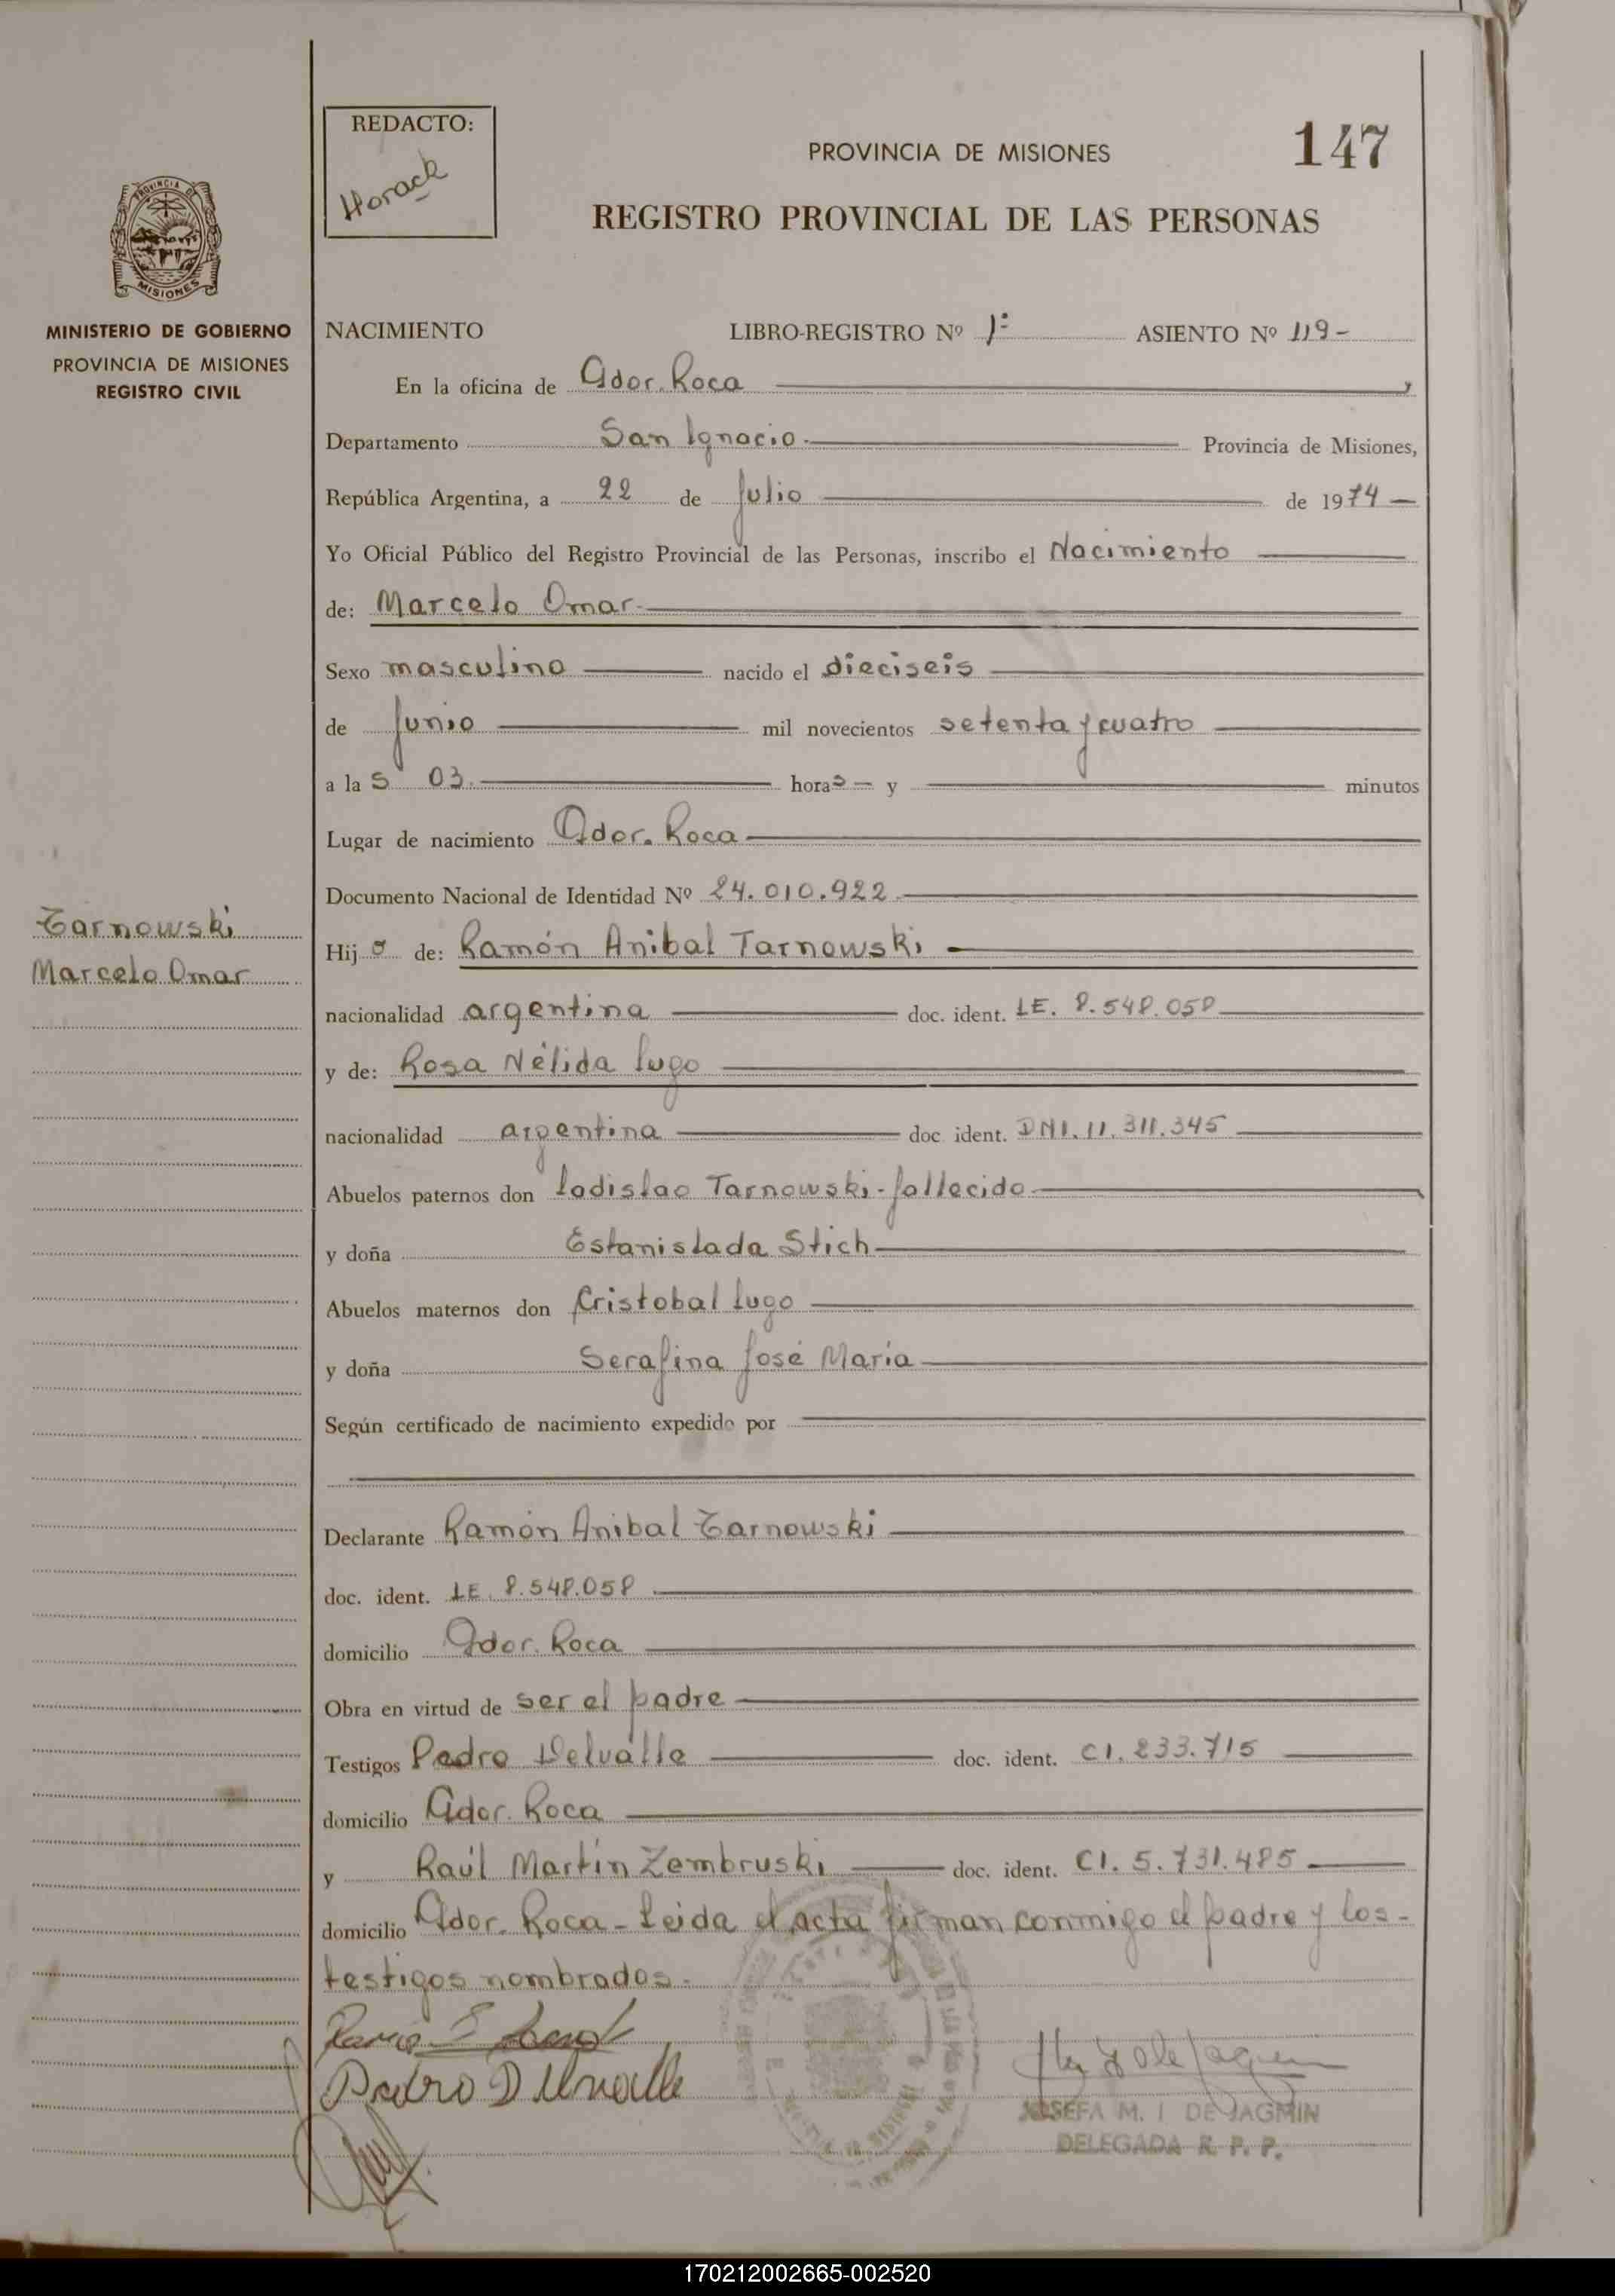 REDACTO:
Horack
PROVINCIA DE MISIONES
147
REGISTRO PROVINCIAL DE LAS PERSONAS
PROVINCIA DE
MISIONES
MINISTERIO DE GOBIERNO
PROVINCIA DE MISIONES
REGISTRO CIVIL
NACIMIENTO LIBRO-REGISTRO Nº 1º ASIENTO Nº 119-
En la oficina de Gdor. Roca,
Departamento San Ignacio. Provincia de Misiones,
República Argentina, a 22 de Julio de 1974
Yo Oficial Público del Registro Provincial de las Personas, inscribo el Nacimiento
de: Marcelo Omar
Sexo masculino nacido el dieciseis
de Junio mil novecientos setenta y cuatro
a las 03. horas y minutos
Lugar de nacimiento Gdor. Roca
Documento Nacional de Identidad Nº 24.010.922
Tarnowski
Marcelo Omar
Hijo de: Ramón Anibal Tarnowski
nacionalidad argentina doc. ident. LE. 8.548.058
y de: Rosa Nélida Lugo
nacionalidad argentina doc. ident. DNI. 11.311.345
Abuelos paternos don Ladislao Tarnowski-fallecido
y doña Estanislada Stich
Abuelos maternos don Cristobal Lugo
y doña Serafina José María
Según certificado de nacimiento expedido por
Declarante Ramón Anibal Tarnowski
doc. ident. LE. 8.548.058
domicilio Gdor. Roca
Obra en virtud de ser el padre
Testigos Pedro Delvalle doc. ident. CI. 233.715
domicilio Gdor. Roca
y Raúl Martín Zembruski doc. ident. CI. 5.731.485
domicilio Gdor. Roca - Leida el acta firman conmigo el padre y los-
testigos nombrados.
Pedro Delvalle
JOSEFA M. I DE JAGMIN
DELEGADA R. P. P.
170212002665-002520